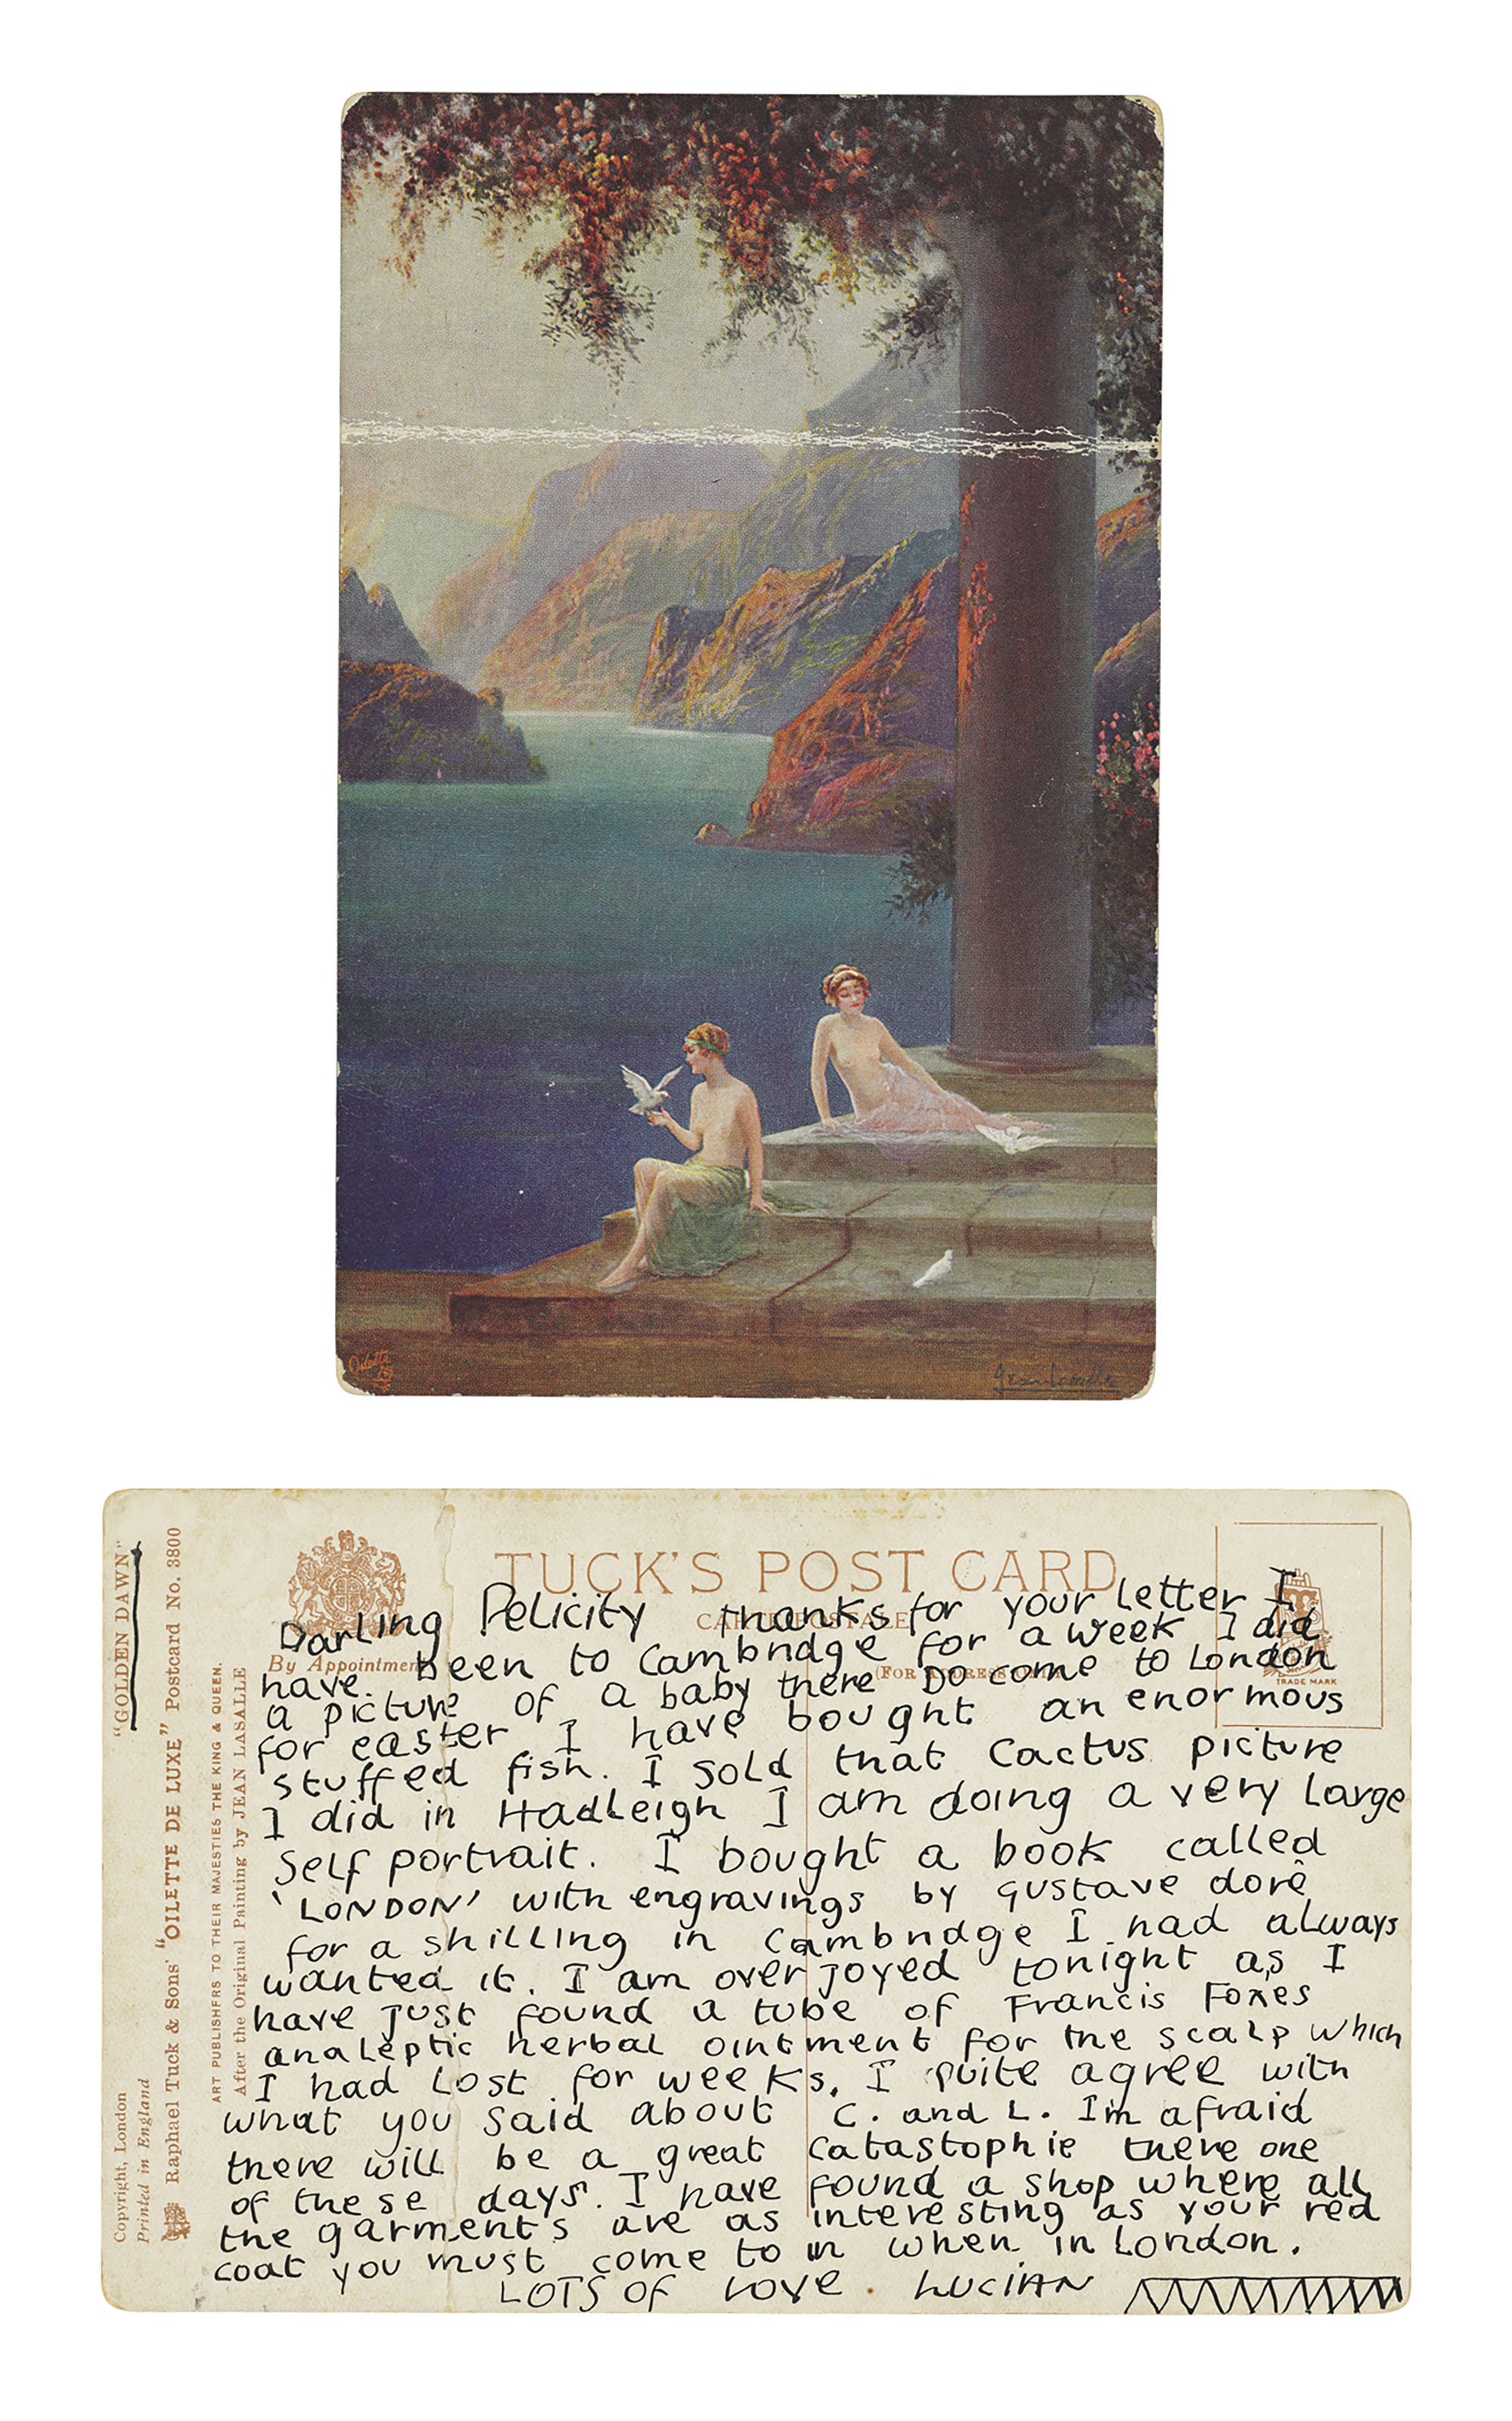 Oilette
Jean Lasalle
"GOLDEN DAWN"
Copyright, London
Printed in England
Raphael Tuck & Sons' "OILETTE DE LUXE" Postcard No. 3800
ART PUBLISHERS TO THEIR MAJESTIES THE KING & QUEEN.
After the Original Painting by JEAN LASALLE
TUCK'S POST CARD
CARTE POSTALE
By Appointment
(FOR ADDRESS ONLY)
TRADE MARK
Darling Felicity thanks for your letter I
have been to Cambridge for a week I did
a picture of a baby there Do come to London
for easter I have bought an enormous
stuffed fish. I sold that Cactus picture
I did in Hadleigh I am doing a very large
self portrait. I bought a book called
'LONDON' with engravings by gustave dorê
for a shilling in Cambridge I had always
wanted it. I am over joyed tonight as I
have just found a tube of Francis Foxes
analeptic herbal ointment for the scalp which
I had lost for weeks. I quite agree with
what you said about C. and L. Im afraid
there will be a great catastophie there one
of these days. I have found a shop where all
the garments are as interesting as your red
coat you must come to in when in London.
LOTS OF LOVE. LUCIAN